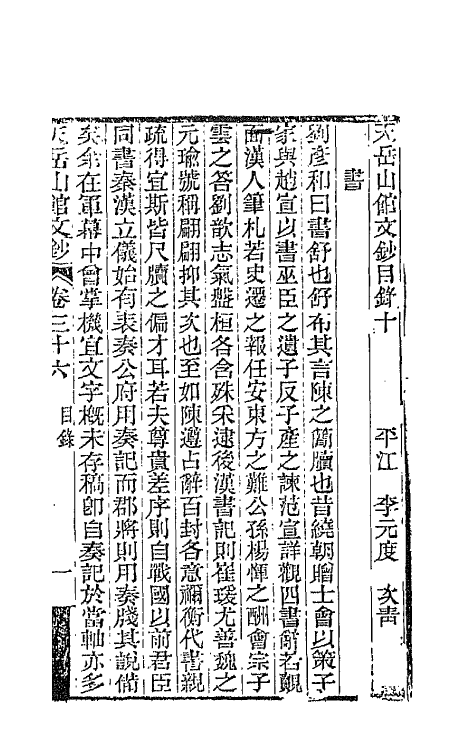 天岳山館文鈔目錄十
平江 李元度 次青
書
劉彥和曰書舒也舒布其言陳之簡牘也昔繞朝贈士會以策子
家與趙宣以書巫臣之遺子反子產之諫范宣詳觀四書辭若覿
面漢人筆札若史遷之報任安東方之難公孫楊惲之酬會宗子
雲之答劉歆志氣盤桓各含殊采逮後漢書記則崔瑗尤善魏之
元瑜號稱翩翩抑其次也至如陳遵占辭百封各意禰衡代書親
疏得宜斯皆尺牘之偏才耳若夫尊貴差序則自戰國以前君臣
同書秦漢立儀始有表奏公府用奏記而郡將則用奏牋其說備
矣余在軍幕中會掌機宜文字概未存稿卽自奏記於當軸亦多
天岳山館文鈔 卷三十六 目錄 一